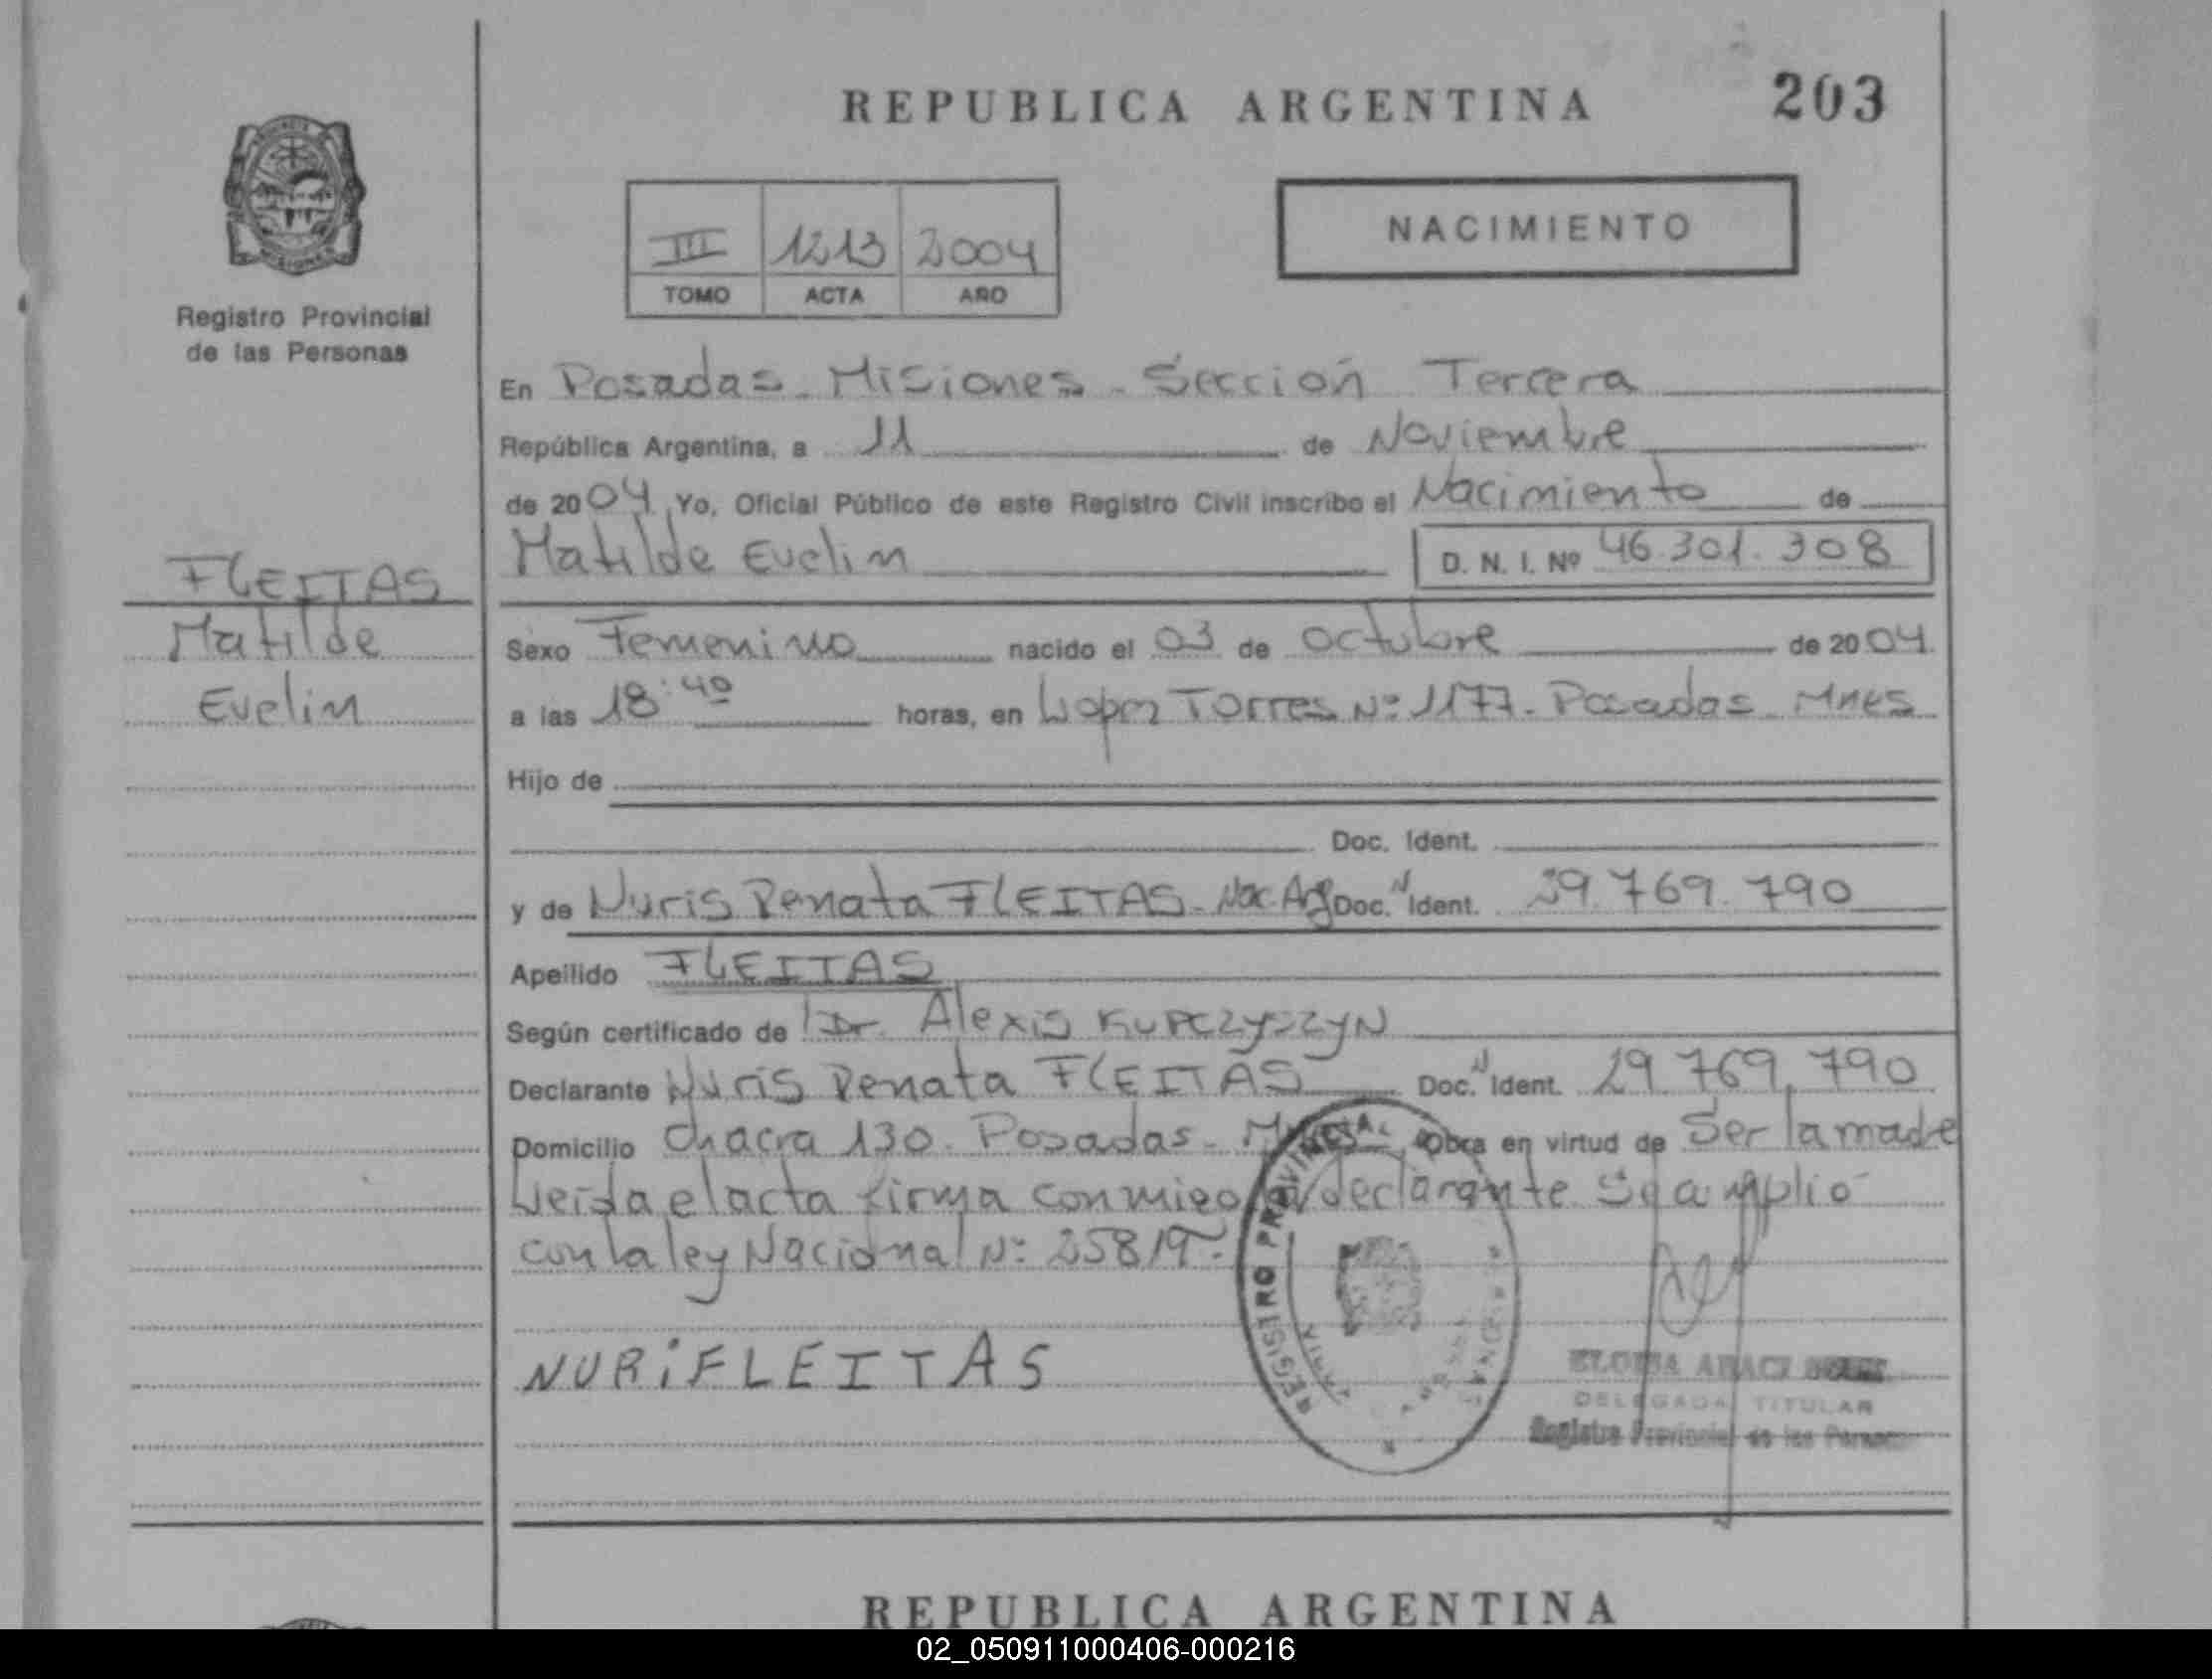 REPUBLICA ARGENTINA
203
NACIMIENTO
III 1213 2004
TOMO ACTA AÑO
Registro Provincial
de las Personas
En Posadas - Misiones - Sección Tercera
República Argentina, a 11 de Noviembre
de 2004. Yo, Oficial Público de este Registro Civil inscribo el Nacimiento de
Matilde Evelin D. N. I. Nº 46.301.308
FLEITAS
Matilde
Evelin
Sexo Femenino nacido el 03 de octubre de 2004.
a las 18:40 horas, en Lopez Torres Nº 1177 - Posadas - Mnes
Hijo de
Doc. Ident.
y de Nuris Renata FLEITAS - Nac. Arg Doc. N Ident. 29.769.790
Apellido FLEITAS
Según certificado de Dr. Alexis KUPCZYSZYN
Declarante Nuris Renata FLEITAS Doc. N Ident. 29.769.790
Domicilio Chacra 130 - Posadas - Mnes Obra en virtud de Ser la madre
Leída el acta firma conmigo la declarante Se amplió
con la ley Nacional Nº 25819.
NURiFLEITAS
REGISTRO PROVINCIAL
DELEGADA TITULAR
Registro Provincial de las Personas
REPUBLICA ARGENTINA
02_050911000406-000216